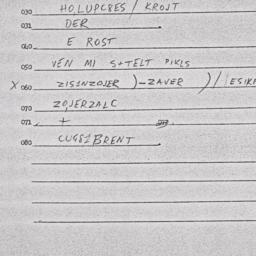 030 HO,LUPC8ES / KROJT
031 DER
040 E ROST
050 VEN MI S+TELT PIKLS
X 060 ZISINZOJER )-ZAVER )/
070 ZOJERZALC
071 +
080 CUGSIBRENT